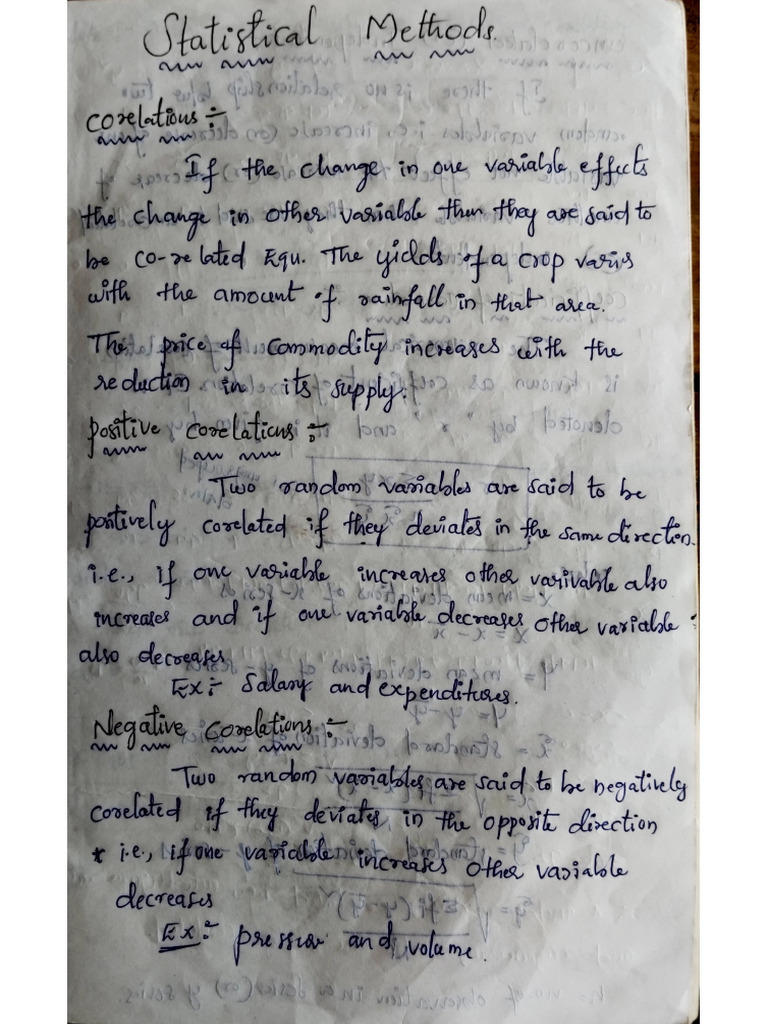 Statistical Methods.
Corelations :-
If the change in one variable effects
the change in other variable then they are said to
be co-related Equ. The yields of a crop varies
with the amount of rainfall in that area.
The price of commodity increases with the
reduction in its supply.
positive corelations :-
Two random variables are said to be
postively corelated if they deviates in the same direction.
i.e., if one variable increases other varivable also
increases and if one variable decreases other variable
also decreases
Ex:- Salary and expenditures.
Negative Corelations :-
Two random variables are said to be negatively
corelated if they deviates in the opposite direction
* i.e., if one variable increases other variable
decreases
Ex:- pressur and volume.